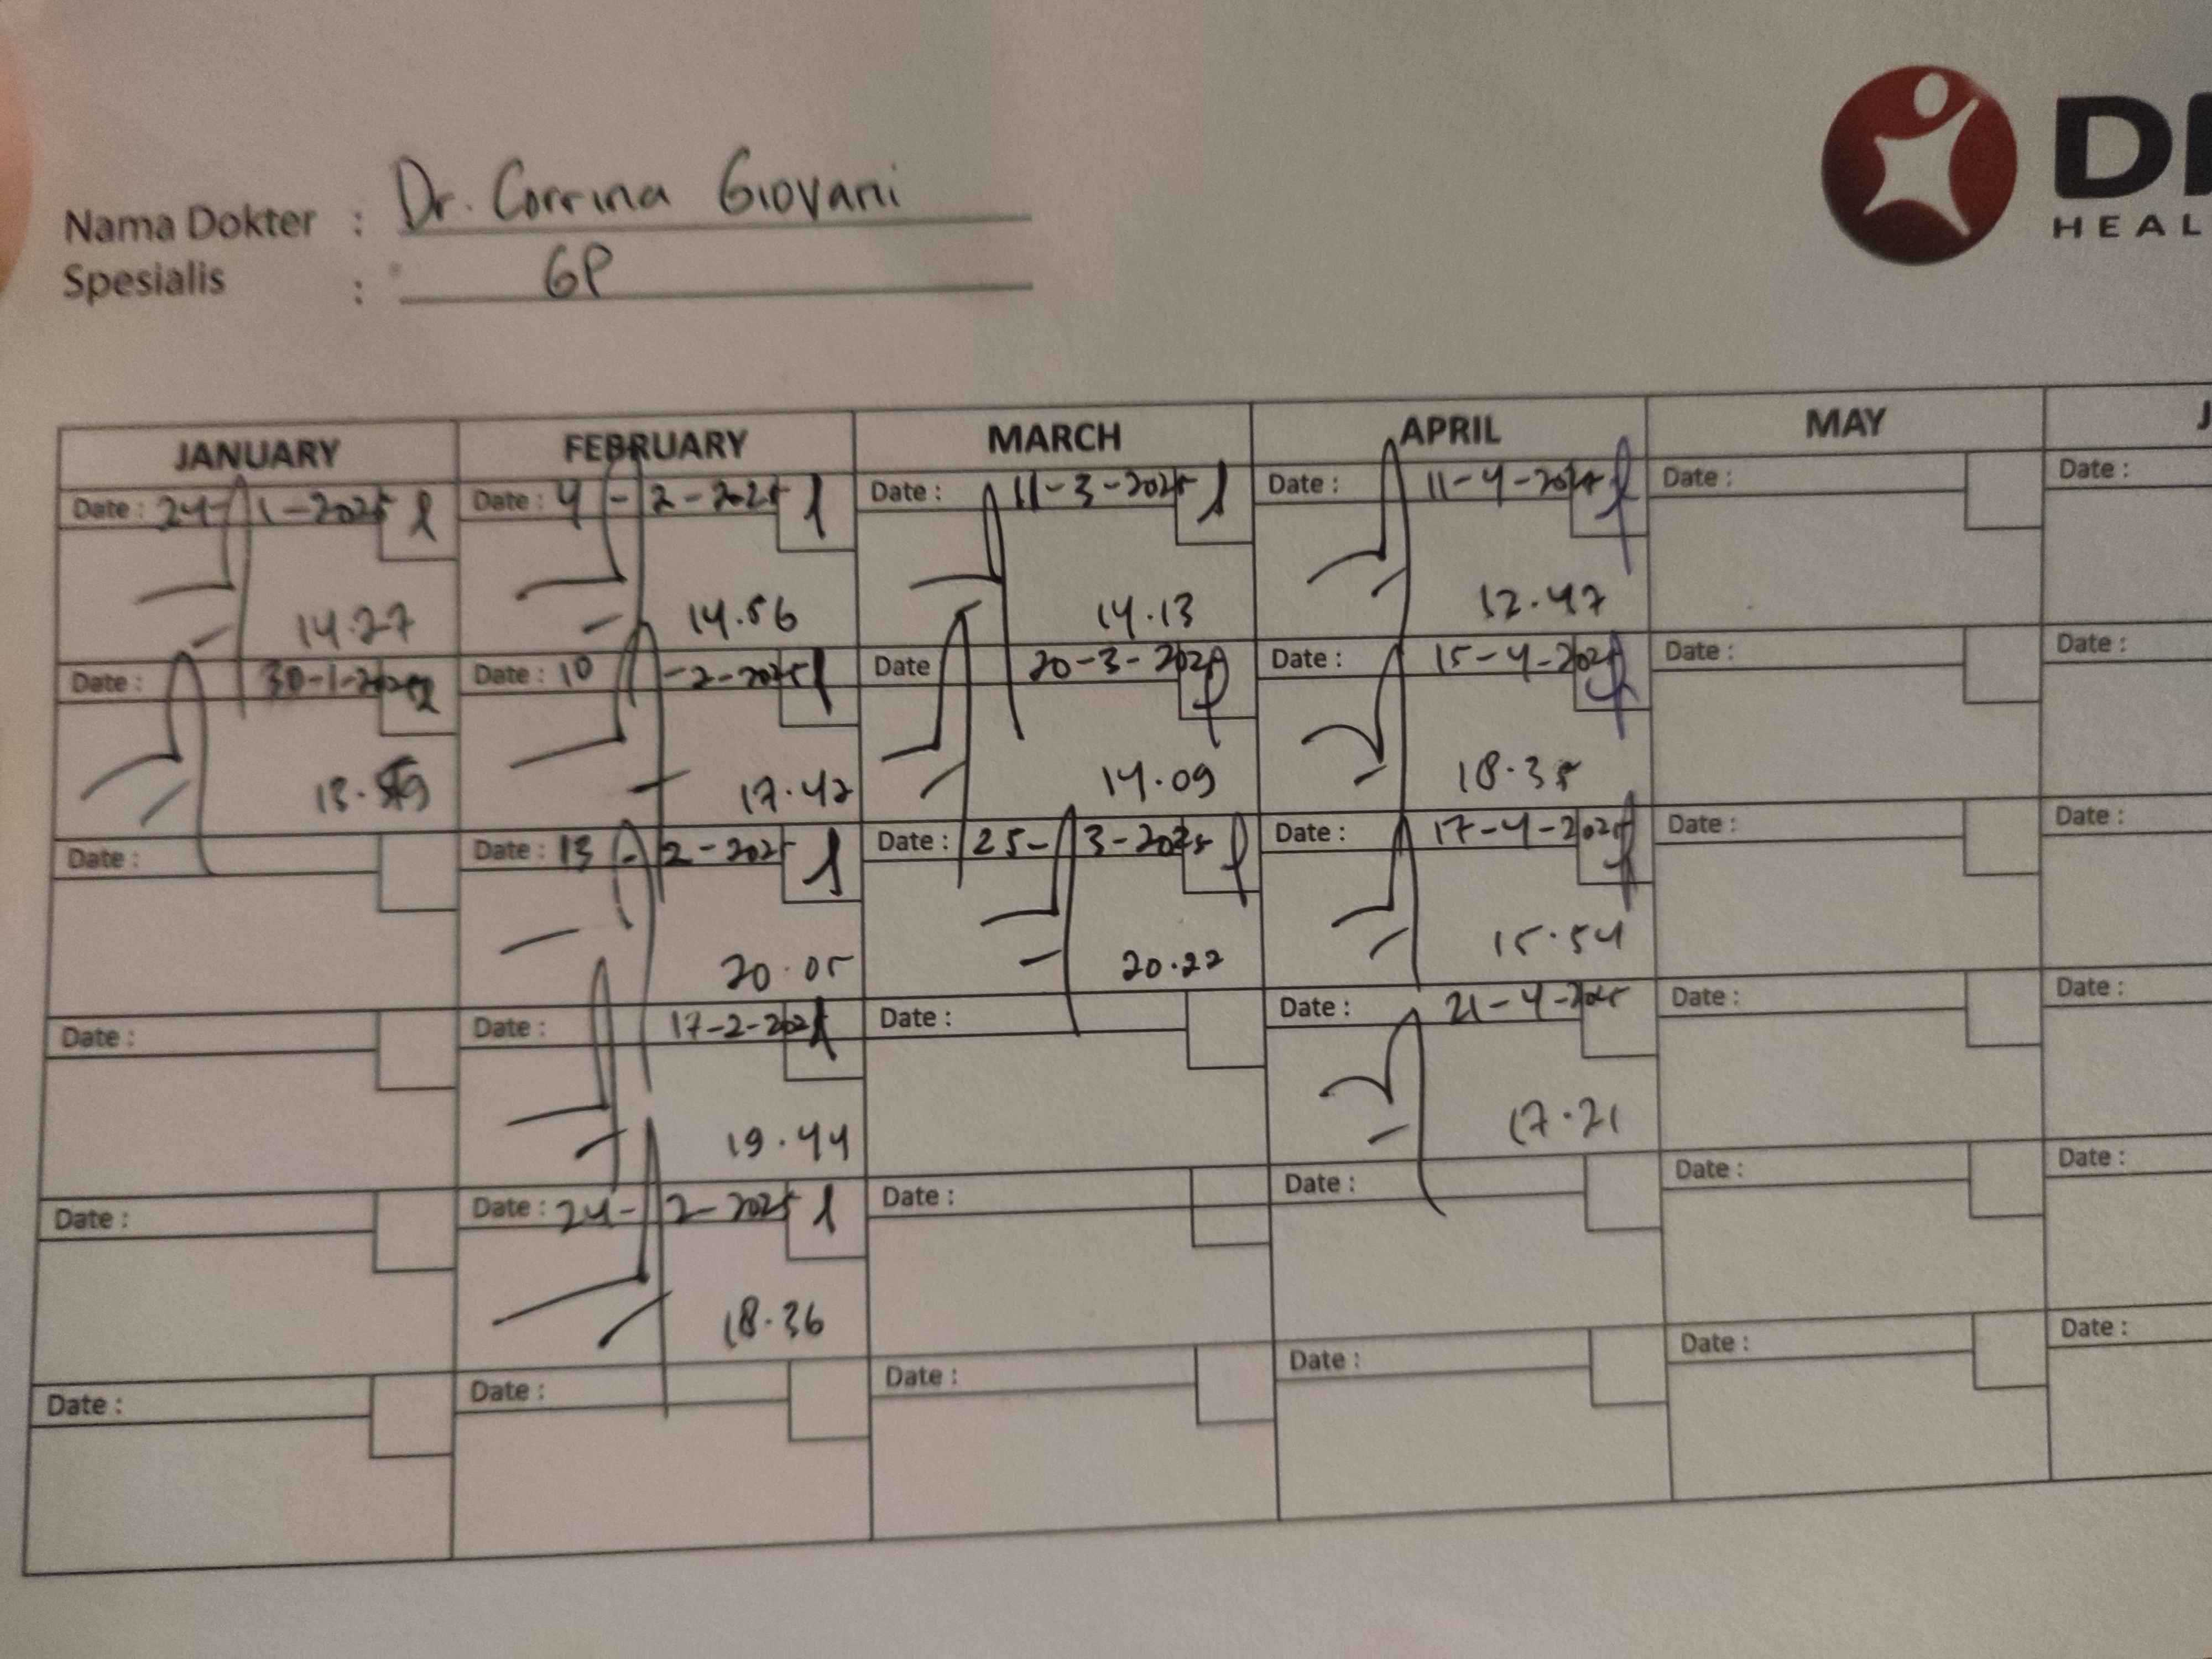 Nama Dokter : Dr. Corrina Giovani
Spesialis : GP
DI
HEAL
JANUARY FEBRUARY MARCH APRIL MAY J
Date : 24-1-2025 Date : 4-2-2025 Date : 11-3-2025 Date : 11-4-2025 Date : Date :
14.27 14.56 14.13 12.47
Date : 30-1-2025 Date : 10-2-2025 Date 20-3-2025 Date : 15-4-2025 Date : Date :
13.59 17.42 14.09 18.35
Date : Date : 13-2-2025 Date : 25-3-2025 Date : 17-4-2025 Date : Date :
20.05 20.22 15.54
Date : Date : 17-2-2025 Date : Date : 21-4-2025 Date : Date :
19.44 17.21
Date : Date : 24-2-2025 Date : Date : Date : Date :
18.36
Date : Date : Date : Date : Date : Date :